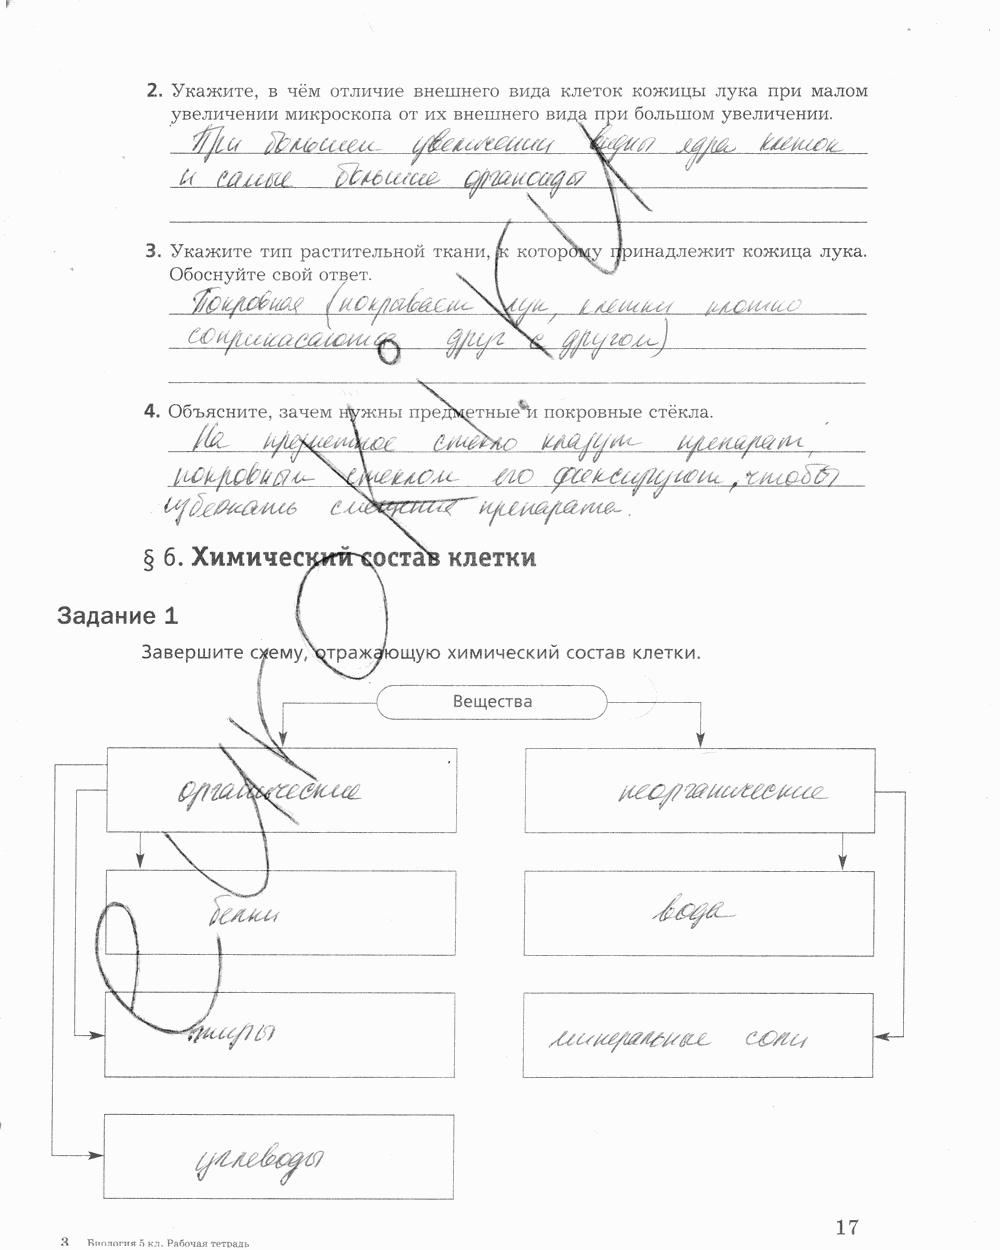 2. Укажите, в чём отличие внешнего вида клеток кожицы лука при малом
увеличении микроскопа от их внешнего вида при большом увеличении.
При большем увеличении видны ядра клеток
и самые большие органоиды
3. Укажите тип растительной ткани, к которому принадлежит кожица лука.
Обоснуйте свой ответ.
Покровная (покрывает лук, клетки плотно
соприкасаются друг с другом)
4. Объясните, зачем нужны предметные и покровные стёкла.
На предметное стекло кладут препарат,
покровным стеклом его фиксируют, чтобы
избежать смещение препарата.
§ 6. Химический состав клетки
Задание 1
Завершите схему, отражающую химический состав клетки.
Вещества
органические
неорганические
белки
вода
жиры
минеральные соли
углеводы
17
3 Биология 5 кл. Рабочая тетрадь